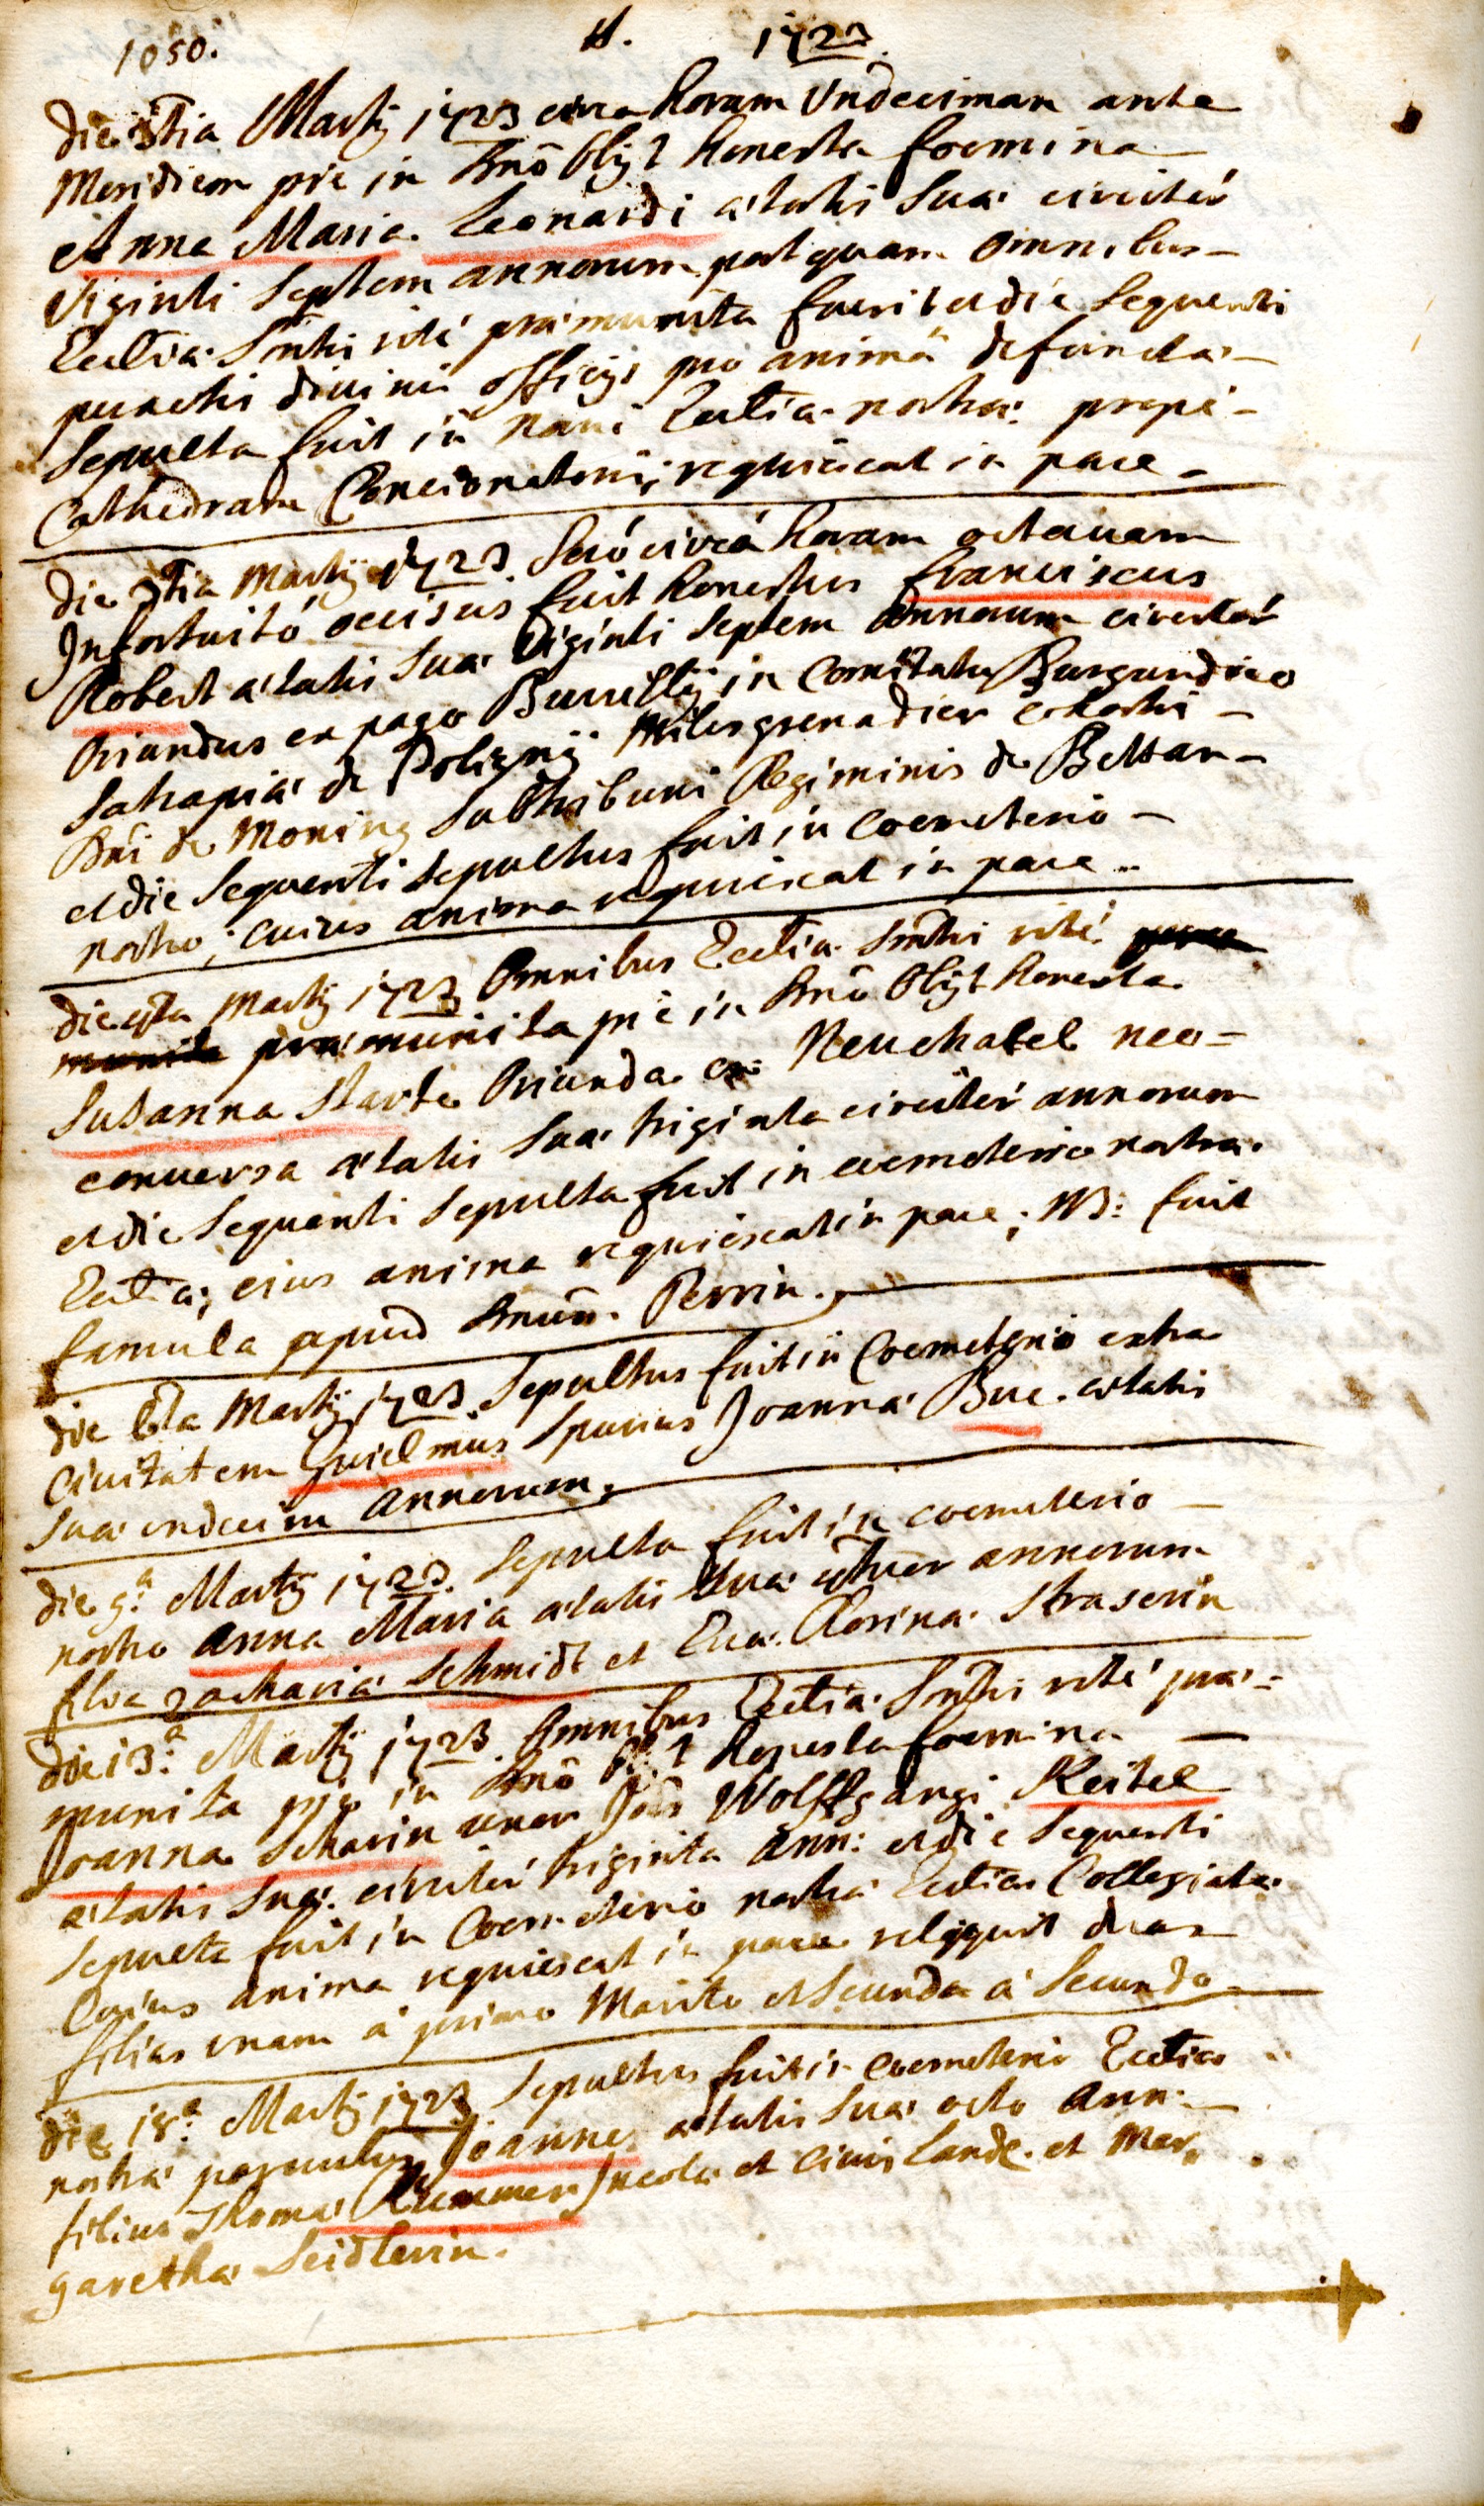 1050. H. 1723
die 3tia Martij 1723 circa horam Undecimam ante
Meridiem pie in Dnõ obijt honesta foemina
Anna Maria Leonardi ætatis suæ circiter
viginti septem annorum postquam omnibus
Eccłiæ Smtis rité præmunita fuerit et die sequenti
peractis diuinis officijs pro animâ defunctæ
sepulta fuit in naui Eccłiæ nostræ propè
Cathedram Concionatoriã; requiescat in pace
die 3tia Martij 1723 seró circá horam octauam
Infortuitó occisus fuit honestus franciscus
Robert ætatis suæ viginti septem annorum circiter
oriundus ex pago Bureilly in Comitatu Burgundiæ
satrapiæ de Poligny miles grenadier cohortis
Dni de Moning subtribuni Regiminis de Beltran
et die sequenti sepultus fuit in coemeterio
nostro; cuius anima requiescat in pace
die 4ta Martij 1723 Omnibus Eccłiæ Smtis rité
munita præmunita piè in Dnõ Obijt honesta
Susanna Starte Oriunda ex Neuchatel neo=
conuersa ætatis suæ triginta circiter annorum
et die sequenti sepulta fuit in coemeterio nostræ
Eccłiæ; eius anima requiescat in pace; NB: fuit
famula apud Dnum Perrin.
die 6ta Martij 1723 sepultus fuit in Coemeterio extra
Ciuitatem Guielmus spurius Joannæ Buc. ætatis
suæ undecim annorum.
die 9.a Martij 1723 sepulta fuit in coemeterio
nostro Anna Maria ætatis suæ annorum
filia zachariæ Schmidt et Euæ Rosinæ Straserin
die 13.a Martij 1723 Omnibus Eccłiæ Smtis rité præ=
munita pie in Dnõ obijt honesta foemina
Joanna Scharin uxor Jois Wolffgangi Keitel
ætatis suæ circiter triginta Ann: et die sequenti
sepulta fuit in Coemeterio nostræ Eccłiæ Collegiatæ
Cuius anima requiescat in pace reliquit duas
filias unam á primo Marito et secundam á secundo
die 18.a Martij 1723 sepultus fuit in coemeterio Eccłiæ
nostræ paruulus Joannes ætatis suæ octo Ann:
filius Thomæ Kummer Incolæ et Ciuis Land. et Mar„
garethæ Seidlerin.